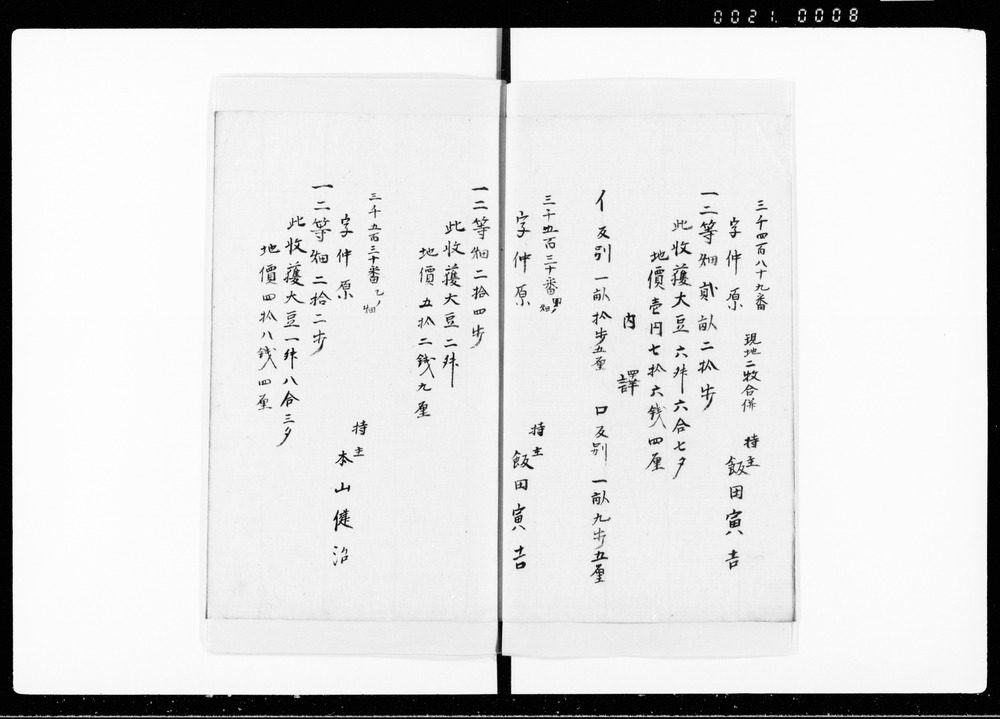 0021.0008
三千四百八十九番 現地二牧合併
字仲原 持主 飯田寅吉
一二等畑貳畝二拾歩
此收穫大豆六升六合七夕
地價壱円七拾六銭四厘
内譯
イ反別一畝拾歩五厘 ロ反別一畝九歩五厘
三千五百三十番甲ノ畑
字仲原 持主 飯田寅吉
一二等畑二拾四歩
此收穫大豆二升
地價五拾二銭九厘
三千五百三十番乙ノ畑
字仲原 持主 本山健治
一二等畑二拾二歩
此收穫大豆一升八合三夕
地價四拾八銭四厘